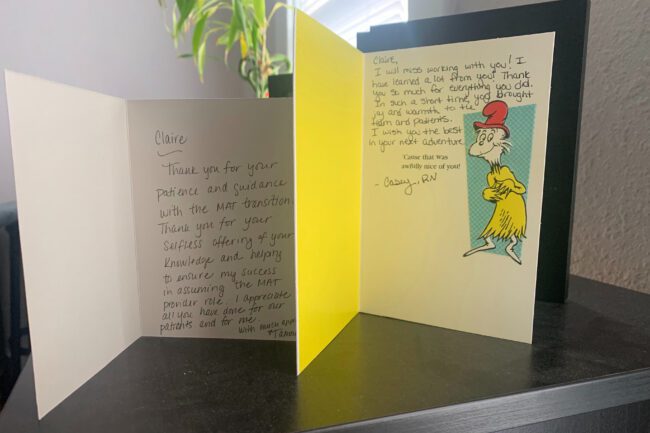 Claire
Thank you for your
patience and guidance
with the MAT transition.
Thank you for your
selfless offering of your
knowledge and helping
to ensure my success
in assuming the MAT
provider role. I appreciate
all you have done for our
patients and for me.
with much
Claire,
I will miss working with you! I
have learned a lot from you! Thank
you so much for everything you did.
In such a short time, you brought
joy and warmth to the
team and patients.
I wish you the best
in your next adventure.
'Cause that was
awfully nice of you!
- Casey, RN